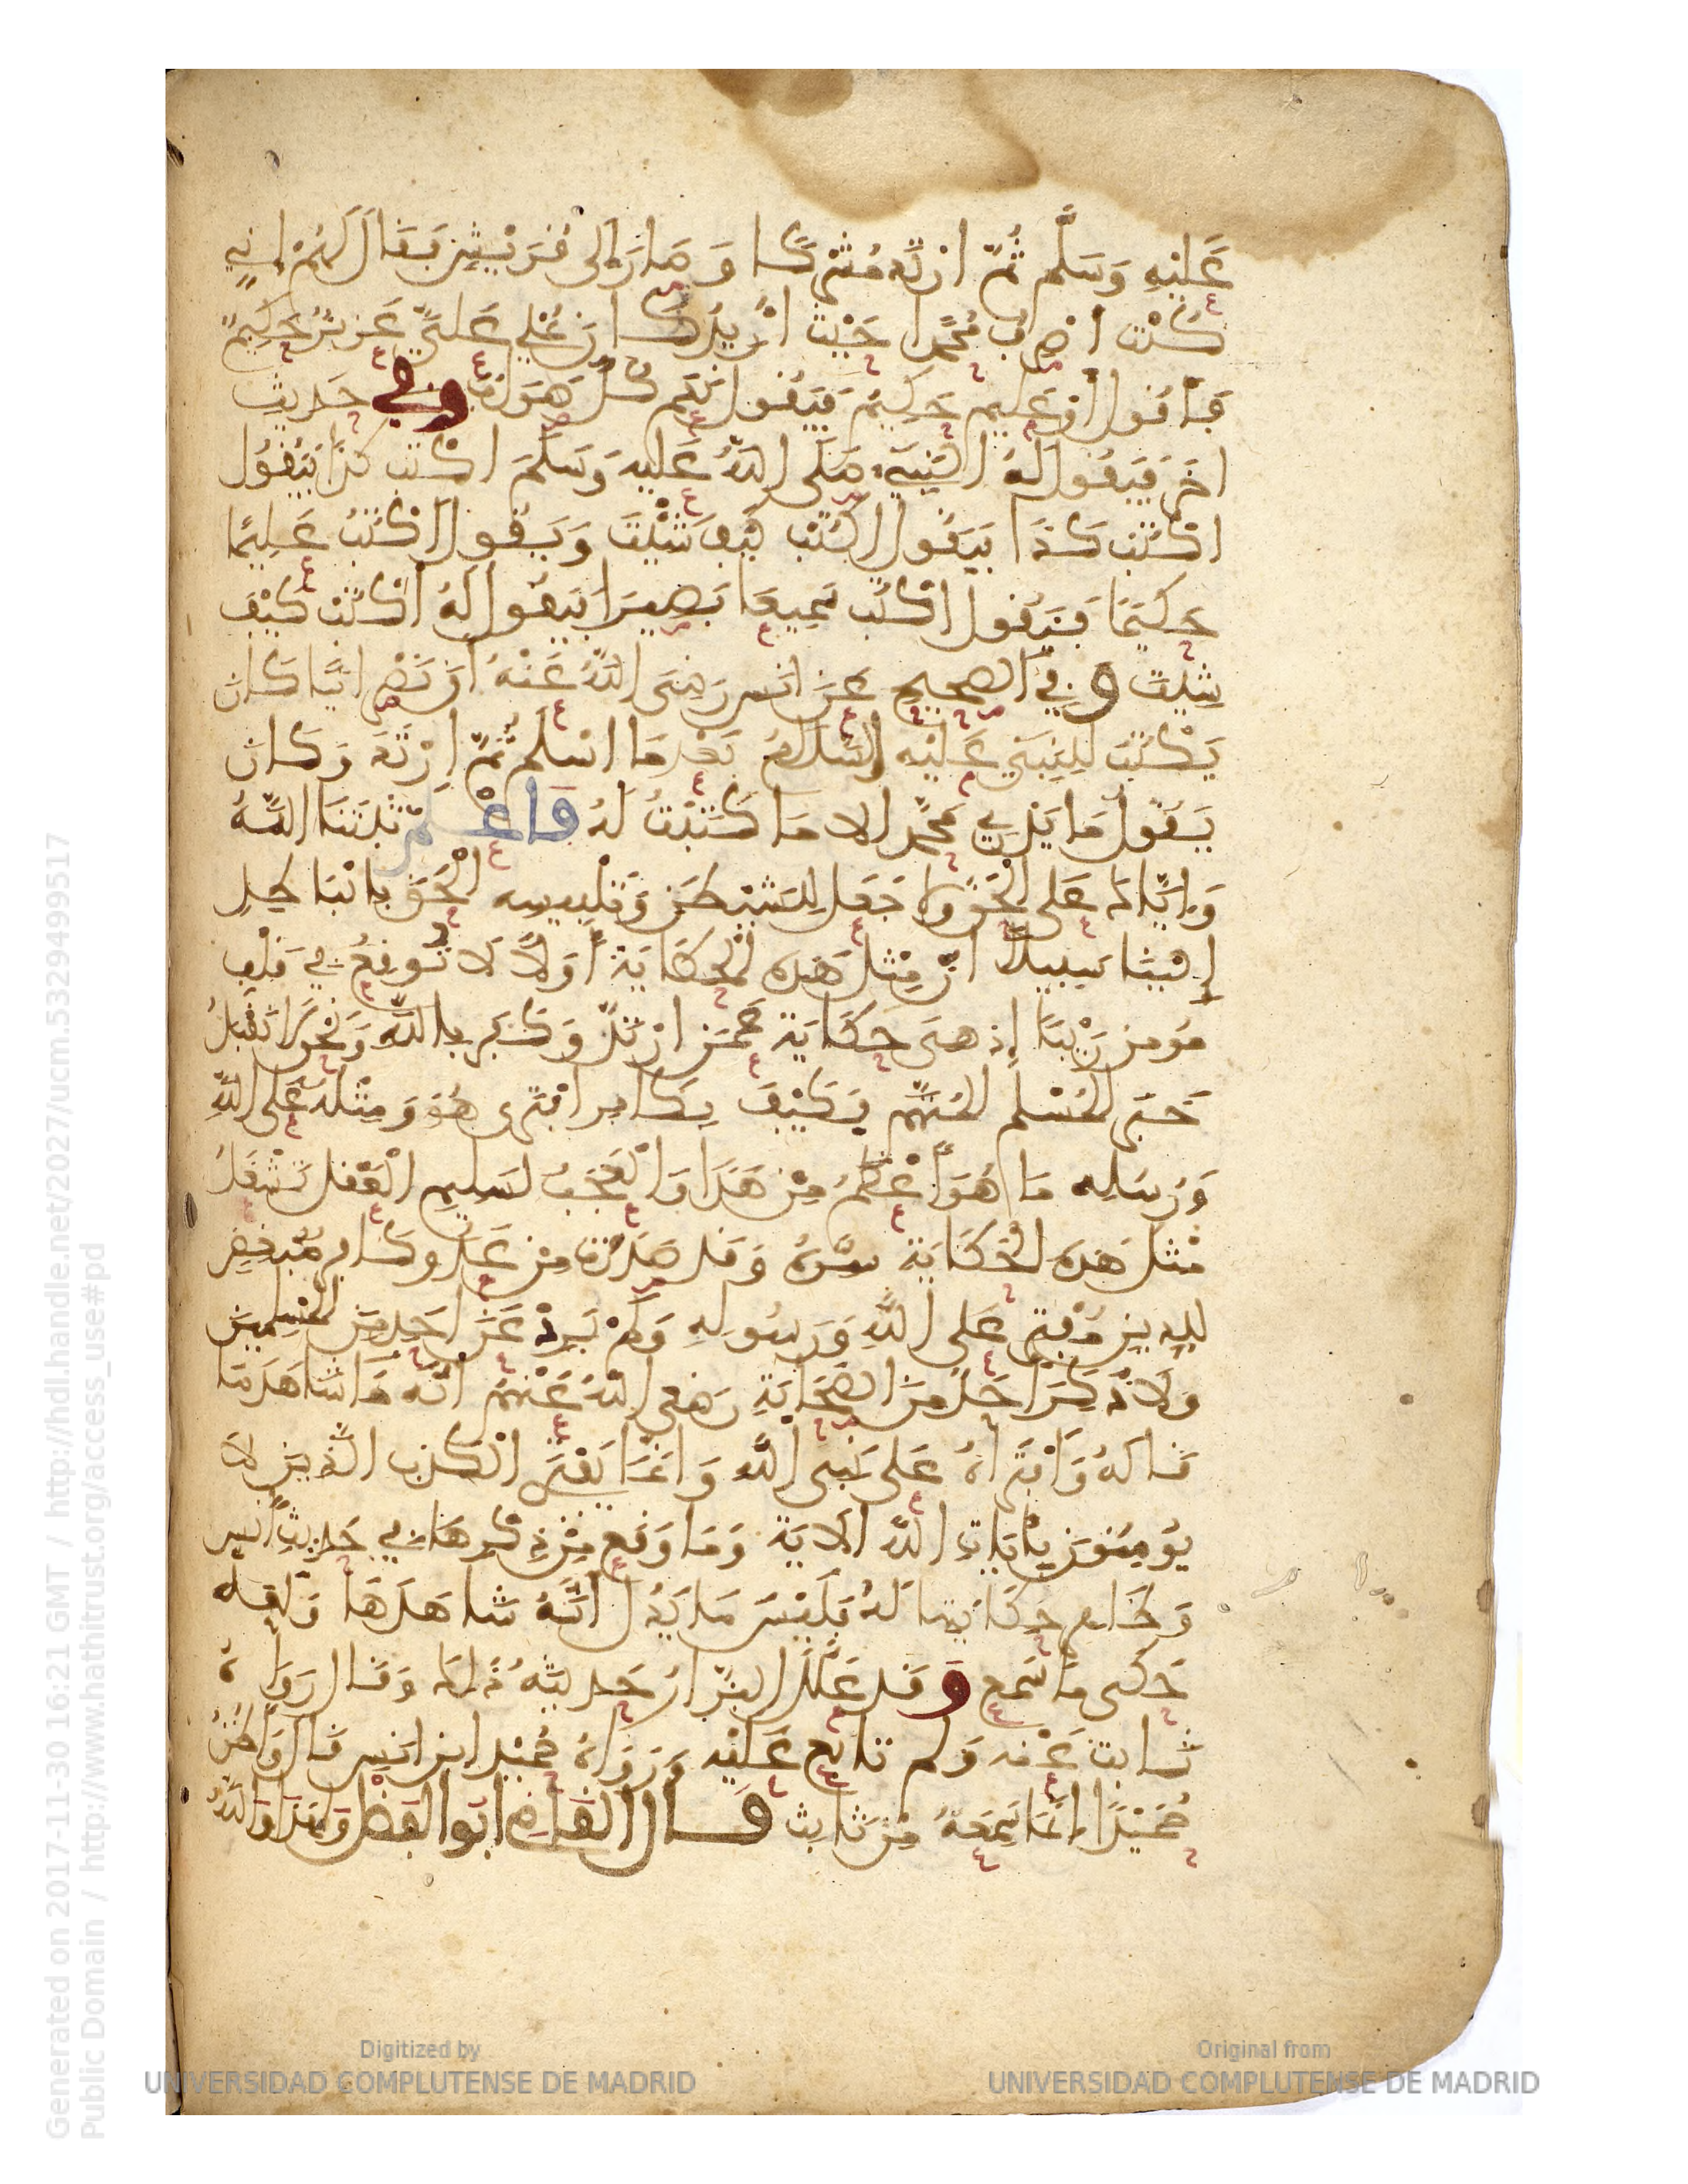 عَلَيْهِ وَسَلَّم ثُمّ ارْتَدّ مُشْرِكًا وَصَارَ إلى قُرَيْشٍ فَقَالَ لَهُمْ إنِّي
كُنْت اصَرِّف مُحَمَّدا حَيْث أُرِيدُ كَانَ يُمْلِي عَلَيَّ عَزِيزٌ حَكِيمٌ
فَأقُول أوْ عَلِيم حَكِيمٌ فَيَقُول نَعَم كُلّ صَوَابٌ وفي حَدِيث
اخَر فَيَقُول لَهُ النَّبِيّ صَلَى اللهُ عَلَيه وَسَلَّمَ اكْتُب كذَا فَيَقُول
اكْتُب كَذَا فَيَقُول اكْتُب كَيْفَ شِئْتَ وَيَقُول اكْتُبُ عَلِيمًا
حَكيمًا فَيَقُول اكْتُب سَمِيعًا بَصِيرَا فَيَقُول لَهُ اكْتُب كَيْفَ
شِئتَ وَفِي الصحيح عَن انَس رَضِيَ اللهُ عَنْهُ أنّ نَصْرانِيًّا كَانَ
يَكْتُبُ لِلنَّبِيّ عَلَيْه السَّلَامُ بَعْدَ مَا اسْلَم ثُمّ ارْتَدّ وَكَانَ
يَقُولُ مَا يَدْرِي مُحَمَّد الا مَا كَتَبْتُ لَهُ فَاعْلَمْ ثَبَّتَنَا اللَّهُ
وَإيَّاكَ عَلى الحَقّ ولا جَعَل لِلشَّيْطَن وَتَلْبِيسِه الْحَقّ بالبَاطِلِ
إلَيْنَا سَبِيلًا أنّ مِثْل هَذِه الحِكَايَة أوَّلًا لَا تُوقِعُ في قَلْبِ
مُؤمن رَيْبًا إذ هيَ حِكَايَة عَمَّن ارْتَدّ وَكَفَر باللهِ وَنَحْنُ لا نَقْبَلُ
خَبَر المُسْلم المُتَّهَم فَكَيْفَ بِكَافِر افْتَرى هُوَ وَمِثْلُهُ عَلى اللهِ
وَرُسُلِه مَا هُوَ أعْظَمُ مِنْ هَذَا وَالْعَجَبُ لسَلِيم الْعَقْل يَشْغَلُ
بِمثْل هَذِه الحِكَايَة سِرَّهُ وَقَد صَدَرَت مِنْ عَدُوّ كَافِر مُبْغِضٍ
لِلدِّين مُفْتَرٍ عَلى اللهِ وَرَسُولِهِ وَلَمْ يَرِدْ عَن احَدٍ مِنَ المُسْلِمِينَ
وَلَا ذَكَرَ احَدٌ مِنَ الصَّحَابَةِ رَضِي اللهُ عَنْهُمْ انَّه شَاهَدَ مَا
قَالَهُ وَافْتَرَاهُ عَلى نَبِيّ اللهِ وَانَّمَا يَفْتَرِي الْكَذِب الَّذِينَ لا
يُؤمِنُونَ بِآيَاتِ اللهِ الآيَة وَمَا وَقَع مِنْ ذِكْرِهَا في حَدِيثِ أنَس
وَظَاهِر حِكَايَتِهَا لَهُ فَلَيْسَ مَا يَدُلّ انَّهُ شَاهَدَهَا وَلَعَلّه
حَكى مَا سَمِع وَقَد عَلَّلَ البَزَّارُ حَدِيثَهُ ذَلك وَقَال رَوَاهُ
ثَابِتٌ عَنْه وَلَم يُتابَع عَلَيْه وَرَوَاهُ حُمَيْد عن انَسٍ قَال وَأظُنُّ
حُمَيْدًا إنَّمَا سَمِعَهُ مِنْ ثَابِت قَال القَاضِي ابُو الفَضْل وَلِهَذَا وَاللهُ